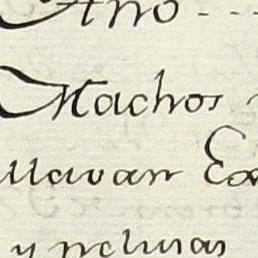 Año
Machos
llevan Ex
y peliusas